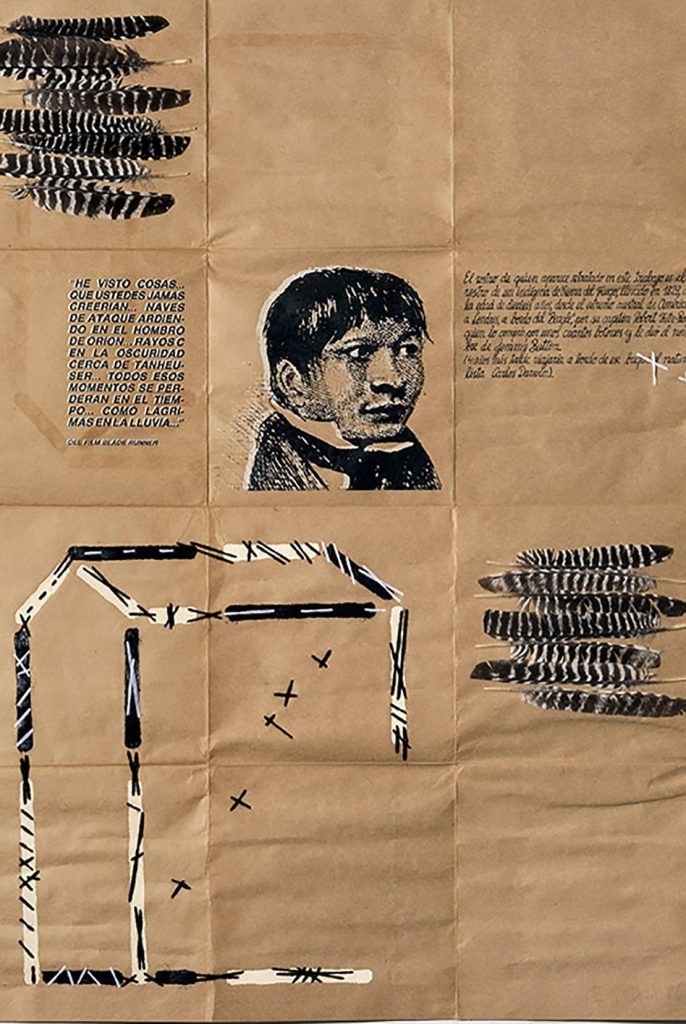 "HE VISTO COSAS...
QUE USTEDES JAMAS
CREERIAN... NAVES
DE ATAQUE ARDIEN-
DO EN EL HOMBRO
DE ORION... RAYOS C
EN LA OSCURIDAD
CERCA DE TANHEU-
SER... TODOS ESOS
MOMENTOS SE PER-
DERAN EN EL TIEM-
PO... COMO LAGRI-
MAS EN LA LLUVIA..."
DEL FILM BLADE RUNNER
El rostro de quien aparece retratado en este trabajo es el
rostro de un indígena de Tierra del Fuego, llevado en
la edad de años, desde el extremo austral de América
a Londres, a bordo del "Beagle", por su capitán Robert Fitz-Roy
quien lo compró por unos cuantos botones y le dio el nom-
bre de Jemmy Button.
(4 años más tarde viajaría a bordo de ese buque el natu-
lista Carlos Darwin).